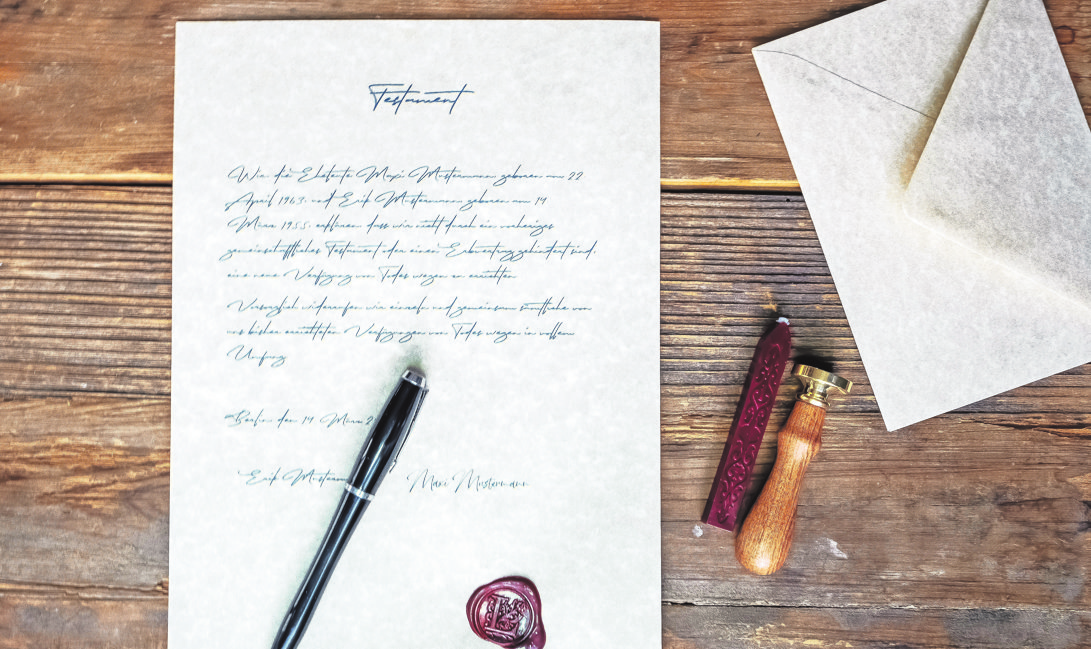 Testament
Wir die Eheleute Maxi Mustermann geboren am 22
April 1963. und Erik Mustermann geboren am 14
März 1955. erklären, dass wir nicht durch ein vorheriges
gemeinschaftliches Testament oder einen Erbvertrag gehindert sind,
eine neue Verfügung von Todes wegen zu errichten
Vorsorglich widerrufen wir einzeln und gemeinsam sämtliche von
uns bisher errichteten Verfügungen von Todes wegen in vollem
Umfang
Berlin, den 14 März 2
Erik Musterman Maxi Mustermann